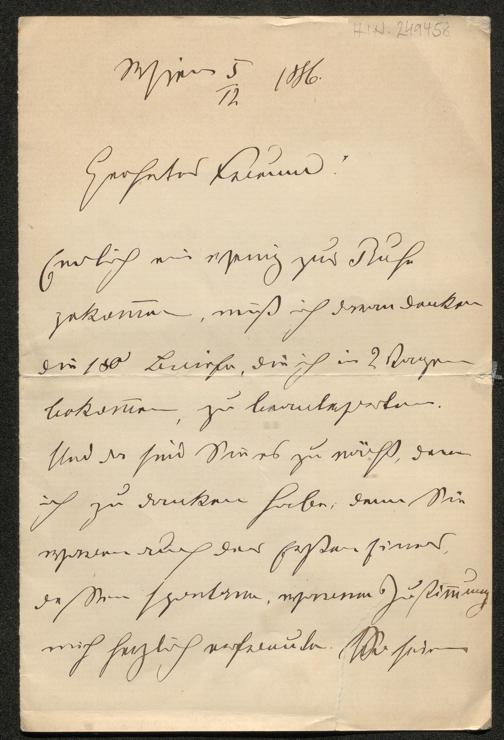 H.I.N. 249458
Wien 5/12 1886.
Geehrter Freund!
Endlich ein wenig zur Ruhe
gekommen, muß ich daran denken
die 180 Briefe, die ich in 2 Tagen
bekommen, zu beantworten.
Und da sind Sie es zunächst, dem
ich zu danken habe; denn Sie
waren auch der Ersten einer,
spontane, warme Zustimmung
mich herzlich erfreute.